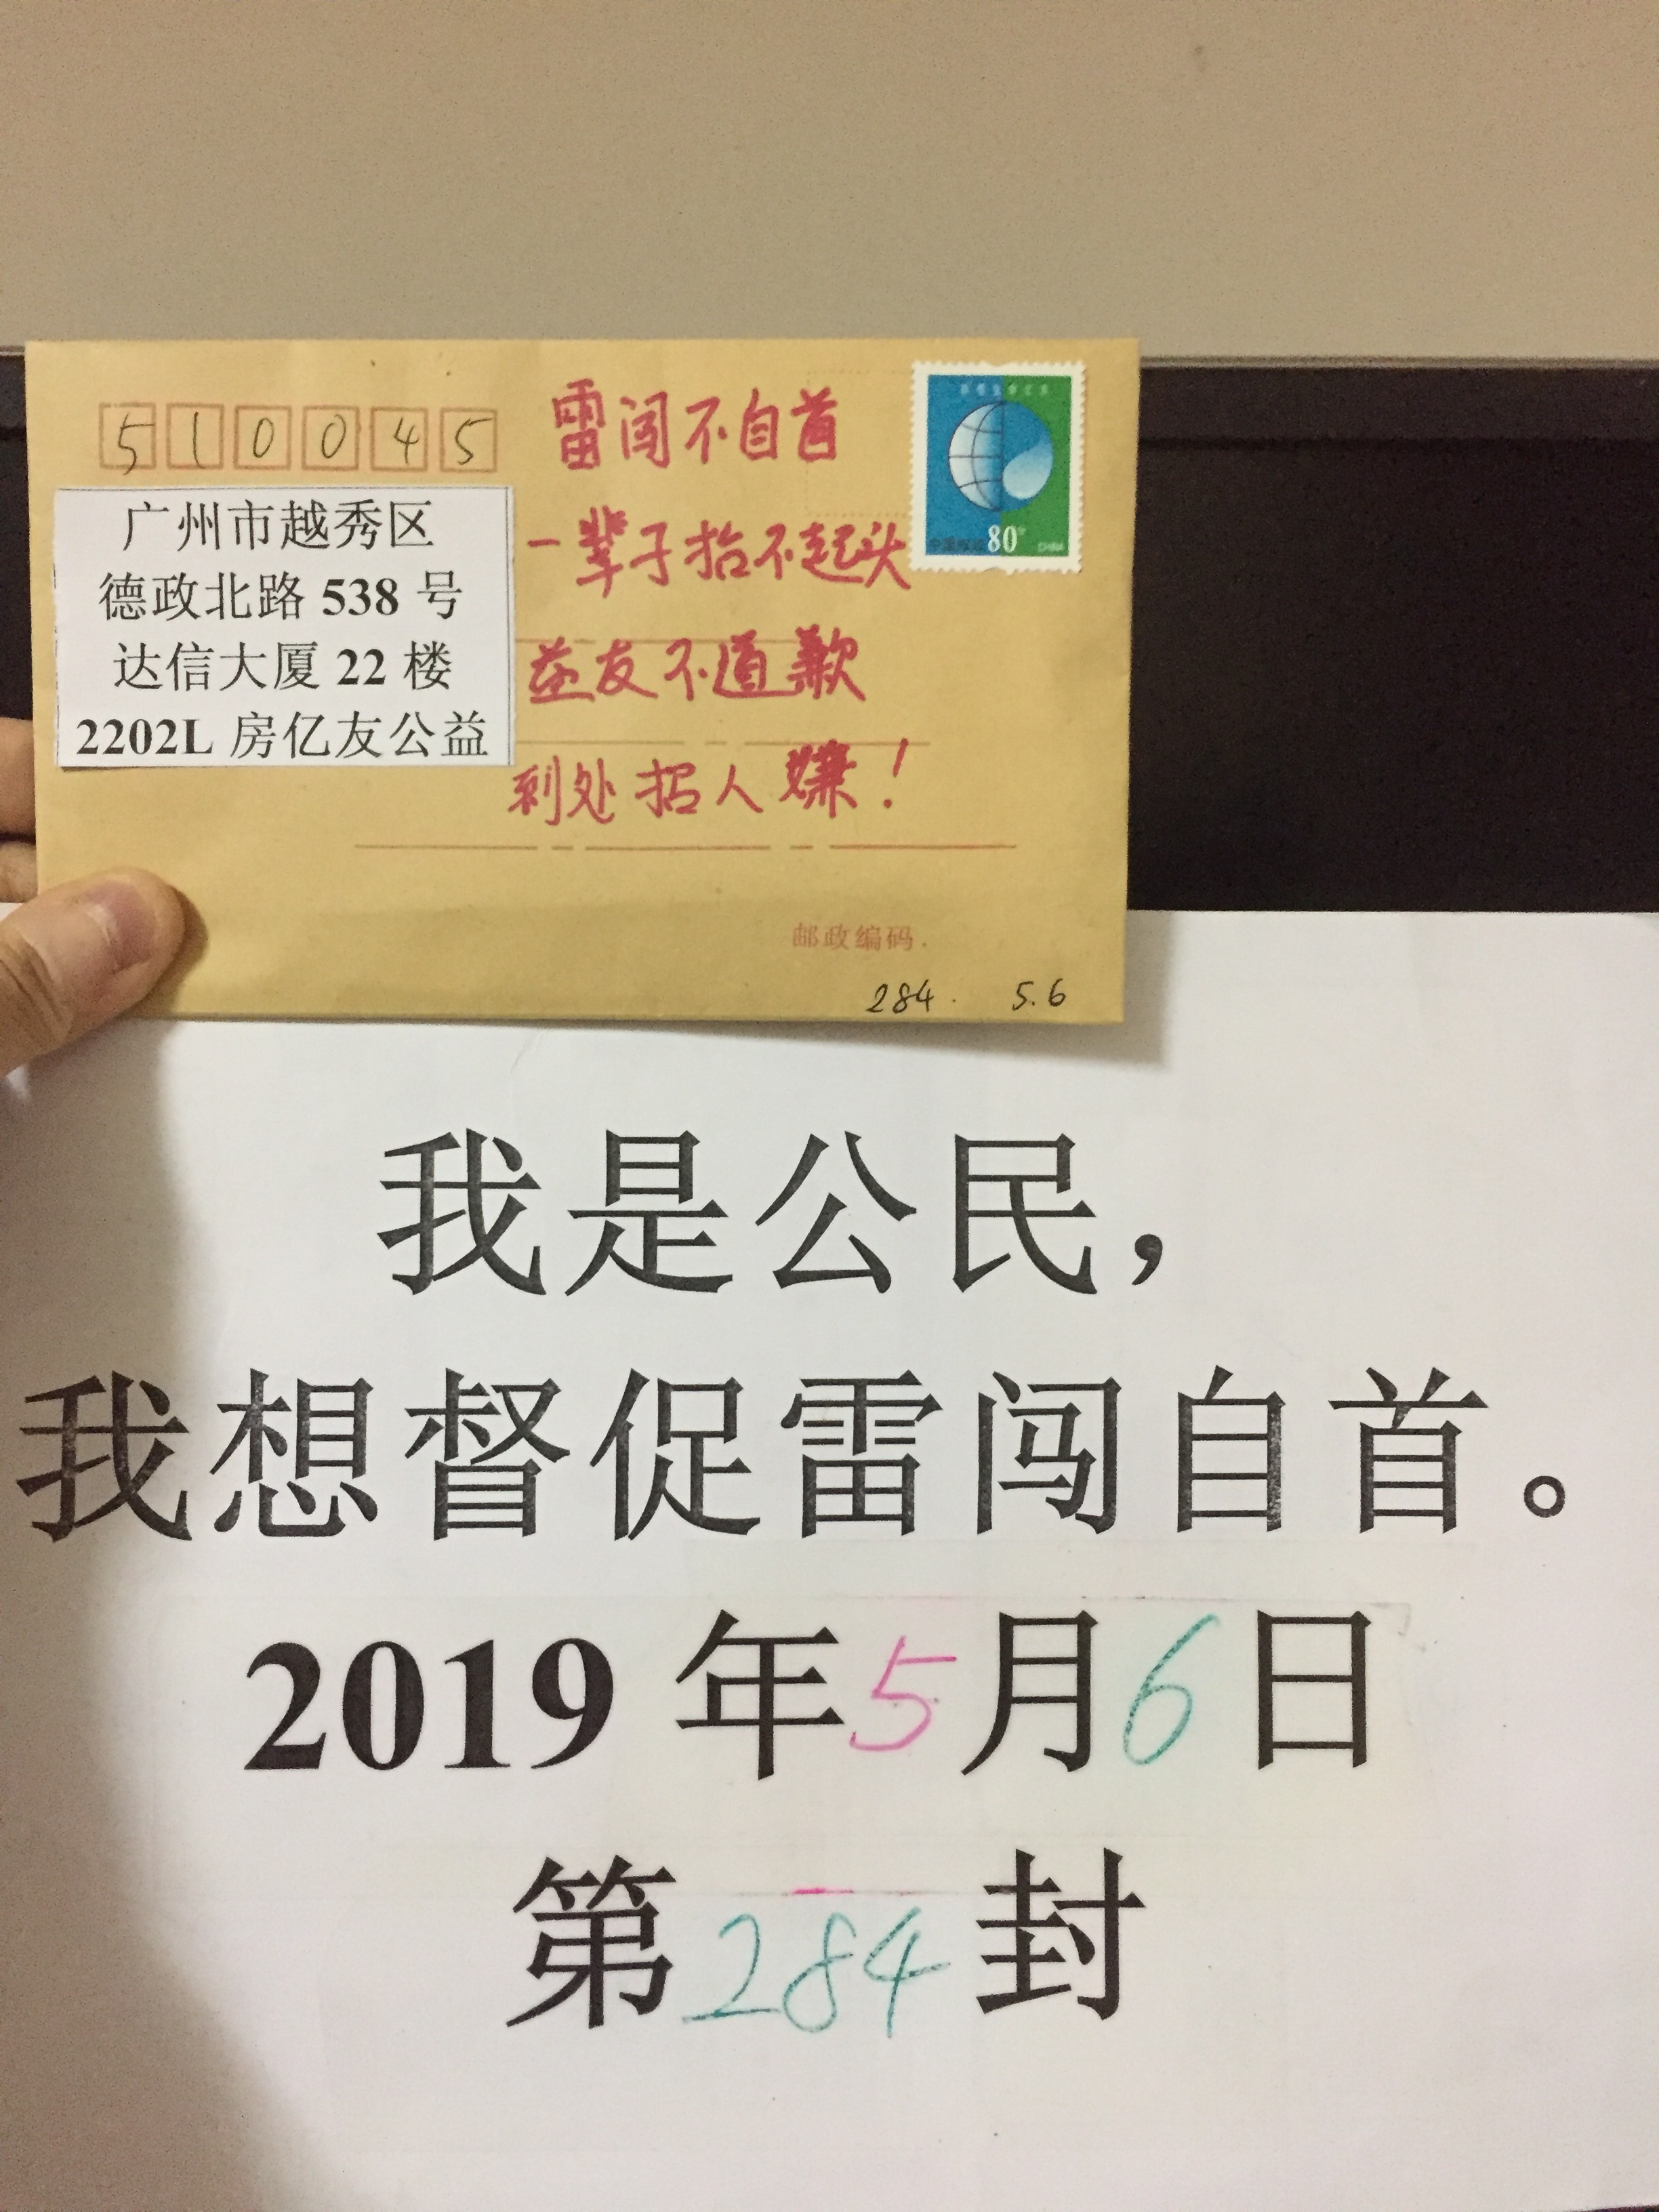 510045
广州市越秀区
德政北路 538 号
达信大厦 22 楼
2202L 房亿友公益
雷闯不自首
一辈子抬不起头
益友不道歉
到处招人嫌！
80
邮政编码
284. 5.6
我是公民，
我想督促雷闯自首。
2019 年 5 月 6 日
第 284 封